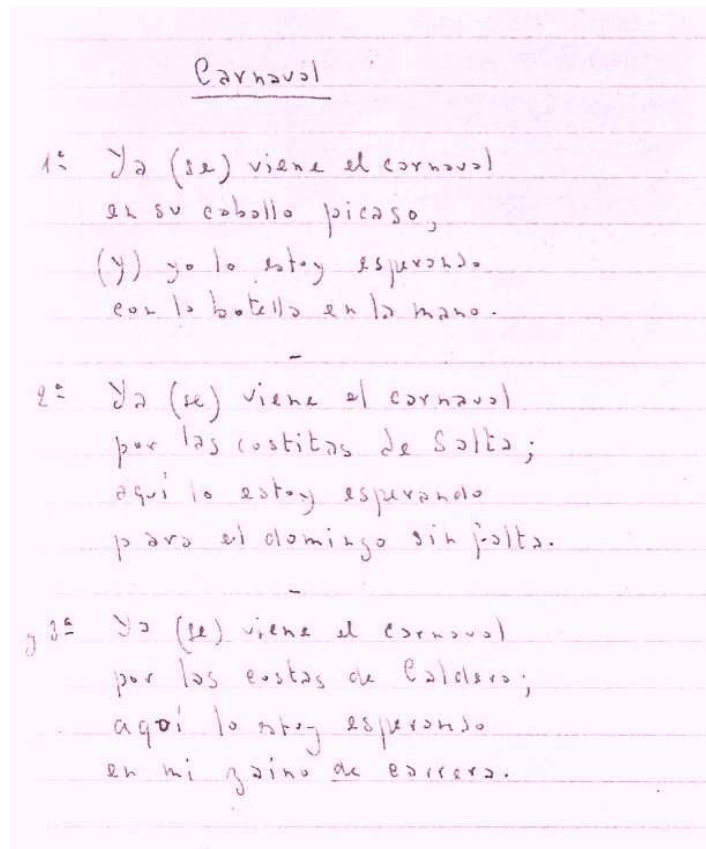 Carnaval
1ª Ya (se) viene el carnaval
en su caballo picaso,
(y) yo lo estoy esperando
con la botella en la mano.
-
2ª Ya (se) viene el carnaval
por las costitas de Salta;
aquí lo estoy esperando
para el domingo sin falta.
-
y 3ª Ya (se) viene el carnaval
por las costas de Caldera;
aquí lo estoy esperando
en mi zaino de carrera.